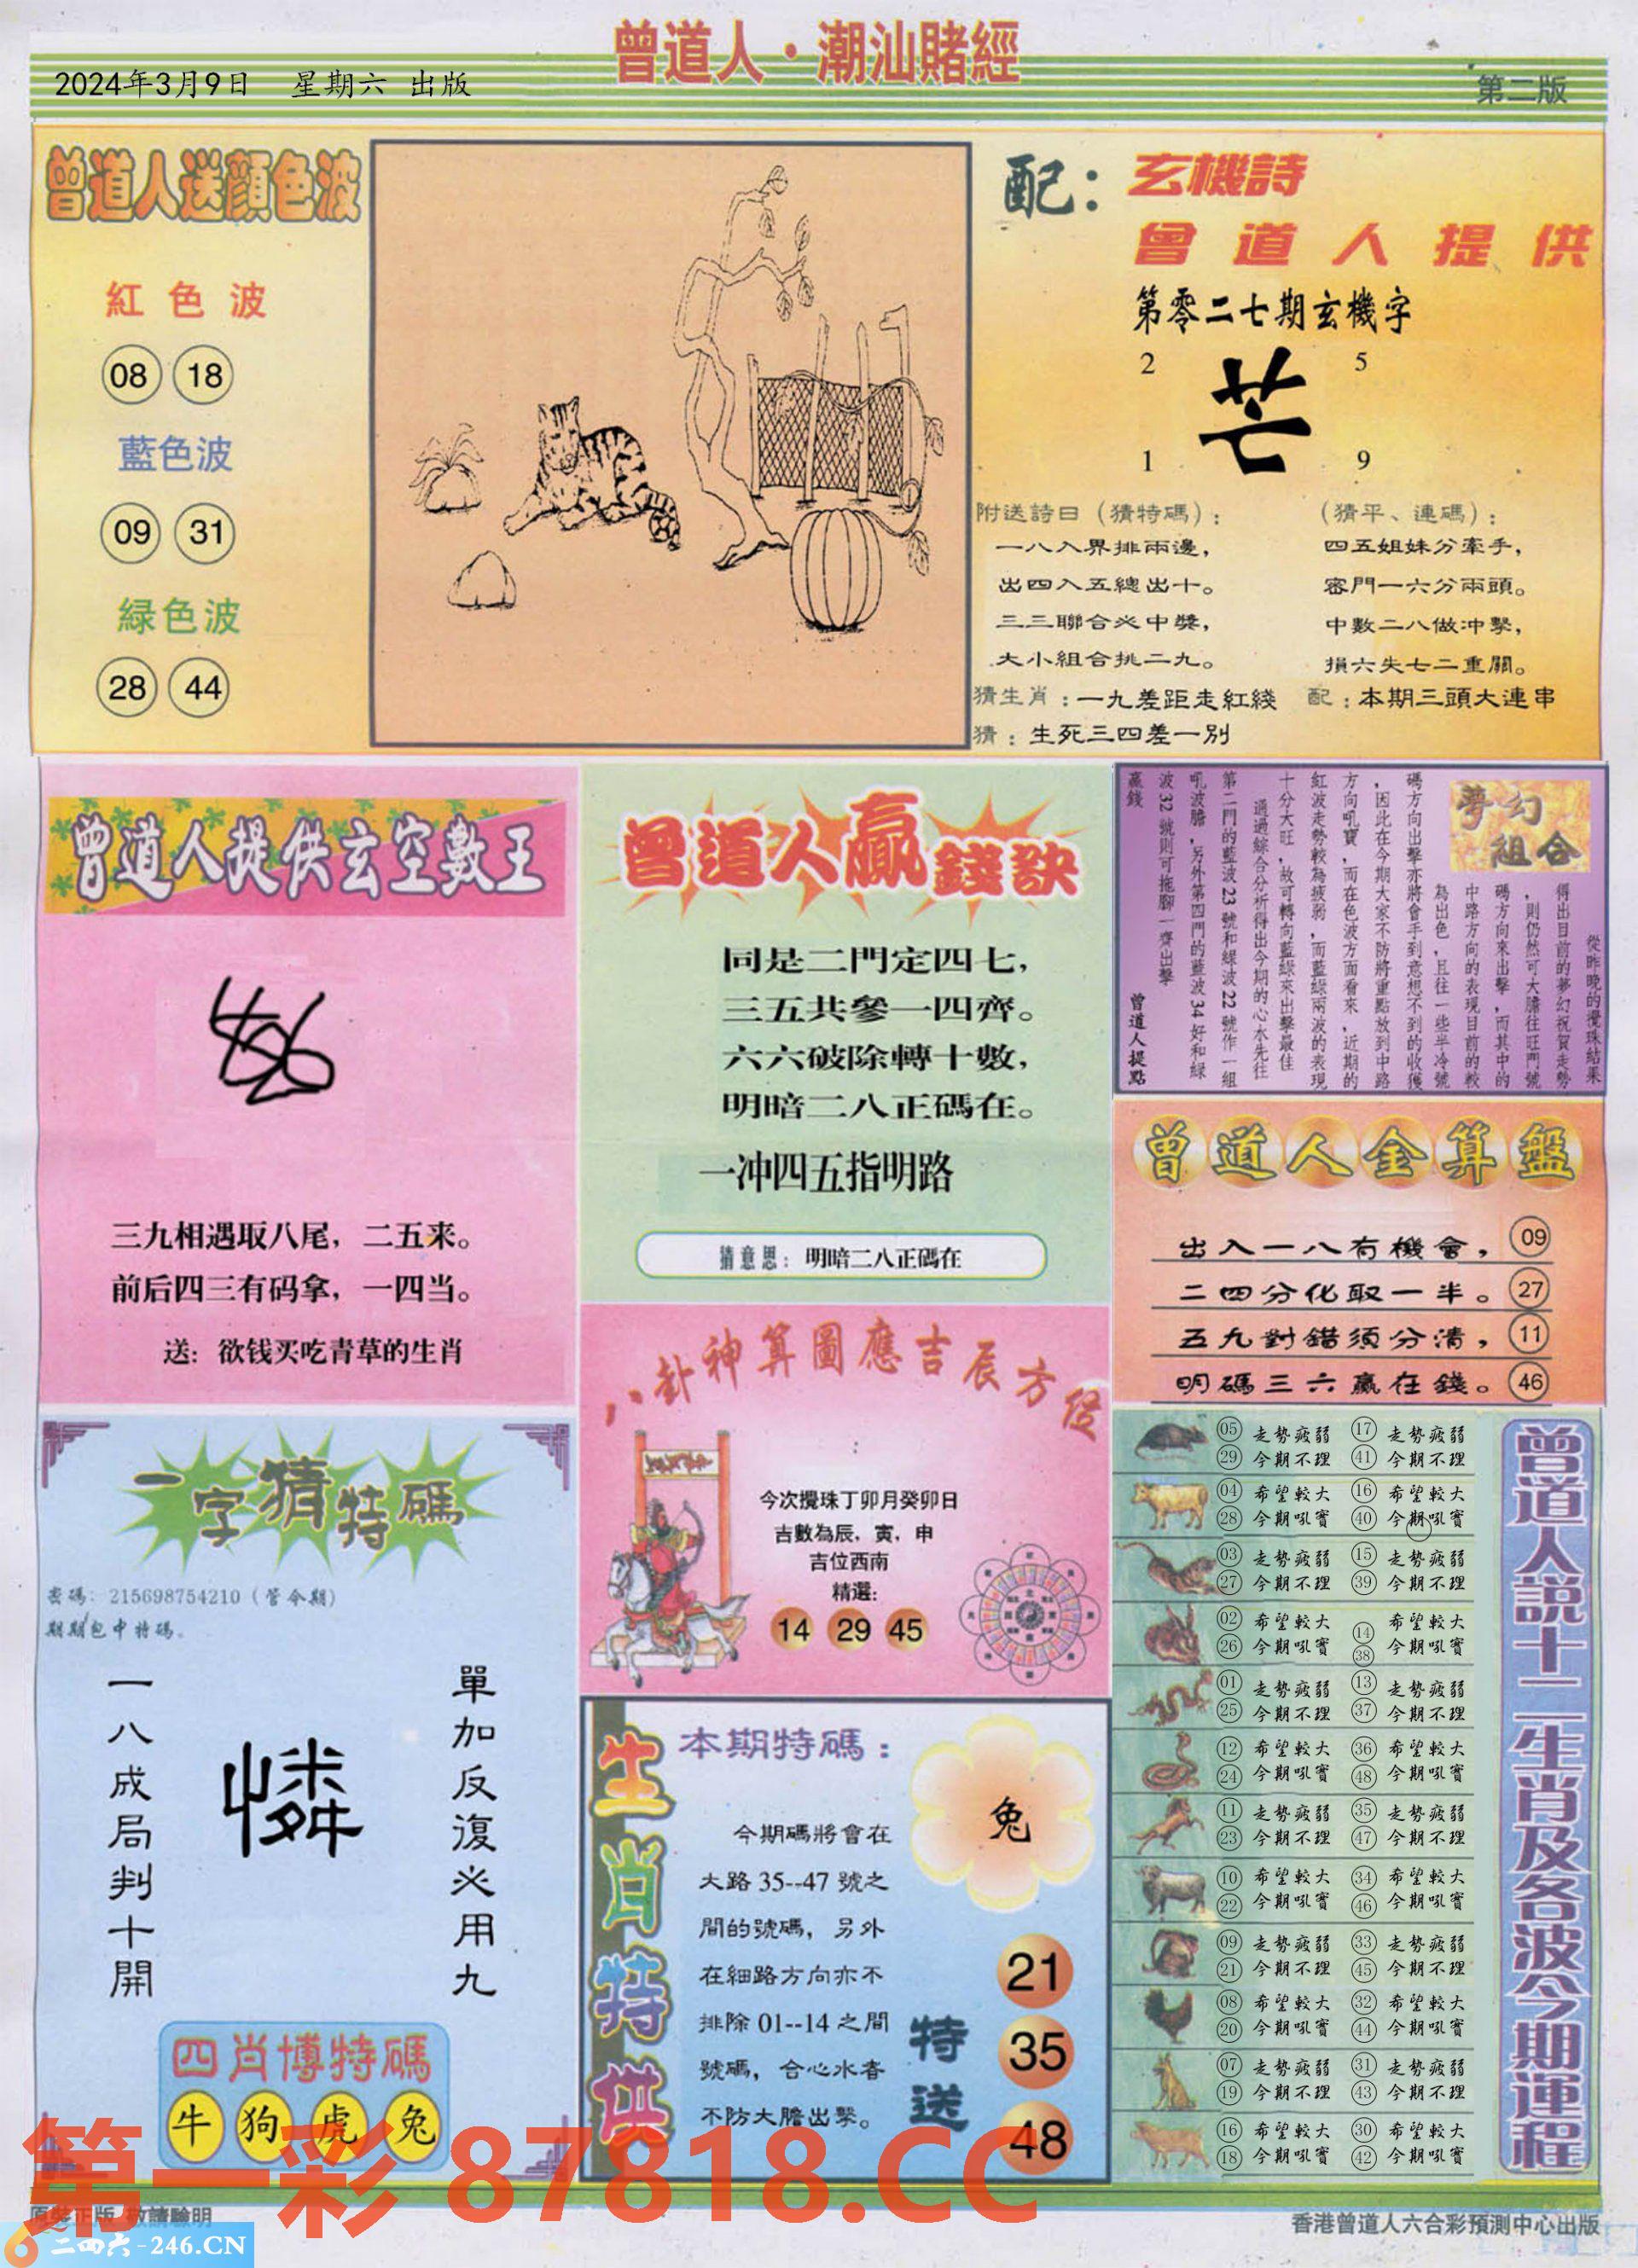 曾道人·潮汕賭經
2024年3月9日 星期六 出版
第二版
曾道人送顏色波
紅色波
08 18
藍色波
09 31
緑色波
28 44
配：玄機詩
曾道人提供
第零二七期玄機字
2 5
芒
1 9
附送詩曰（猜特碼）：
一八入界排兩邊，
出四入五總出十。
三三聯合必中獎，
大小組合挑二九。
（猜平、連碼）：
四五姐妹分牽手，
密門一六分兩頭。
中數二八做冲擊，
損六失七二重關。
猜生肖：一九差距走紅綫 配：本期三頭大連串
猜：生死三四差一别
曾道人提供玄空數王
三九相遇取八尾，二五来。
前后四三有码拿，一四当。
送：欲钱买吃青草的生肖
曾道人贏錢訣
同是二門定四七，
三五共參一四齊。
六六破除轉十數，
明暗二八正碼在。
一冲四五指明路
猜意思：明暗二八正碼在
夢幻組合
從昨晚的攪珠結果
得出目前的夢幻祝賀走勢
，則仍然可大膽往旺門號
碼方向來出擊，而其中的
中路方向的表現目前的較
為出色，且往一些半冷號
碼方向出擊亦將會手到意想不到的收獲
，因此在今期大家不防將重點放到中路
方向吼寶，而在色波方面看來，近期的
紅波走勢較為疲弱，而藍綠兩波的表現
十分大旺，故可轉向藍綠來出擊最佳
通過綜合分析得出今期的心水先往
第二門的藍波23號和綠波22號作一組
吼波膽，另外第四門的藍波34好和綠
波32號則可拖腳一齊出擊
贏錢 曾道人提點
曾道人金算盤
出入一八有機會， 09
二四分化取一半。 27
五九對錯須分清， 11
明碼三六贏在錢。 46
八卦神算圖應吉辰方位
今次攪珠丁卯月癸卯日
吉數為辰，寅，申
吉位西南
精選：
14 29 45
一字猜特碼
密碼：215698754210（管今期）
期期包中特碼。
單加反復必用九
憐
一八成局判十開
四肖博特碼
牛 狗 虎 兔
生肖特供
本期特碼：
兔
今期碼將會在
大路35--47號之
間的號碼，另外
在細路方向亦不
排除01--14之間
號碼，合心水者
不防大膽出擊。
特送
21
35
48
曾道人說十二生肖及各波今期運程
05 走勢疲弱 17 走勢疲弱
29 今期不理 41 今期不理
04 希望較大 16 希望較大
28 今期吼寶 40 今期吼寶
03 走勢疲弱 15 走勢疲弱
27 今期不理 39 今期不理
02 希望較大 14 希望較大
26 今期吼寶 38 今期吼寶
01 走勢疲弱 13 走勢疲弱
25 今期不理 37 今期不理
12 希望較大 36 希望較大
24 今期吼寶 48 今期吼寶
11 走勢疲弱 35 走勢疲弱
23 今期不理 47 今期不理
10 希望較大 34 希望較大
22 今期吼寶 46 今期吼寶
09 走勢疲弱 33 走勢疲弱
21 今期不理 45 今期不理
08 希望較大 32 希望較大
20 今期吼寶 44 今期吼寶
07 走勢疲弱 31 走勢疲弱
19 今期不理 43 今期不理
16 希望較大 30 希望較大
18 今期吼寶 42 今期吼寶
第一彩 87818.CC
原裝正版 敬請驗明
二四六-246.CN
香港曾道人六合彩預測中心出版